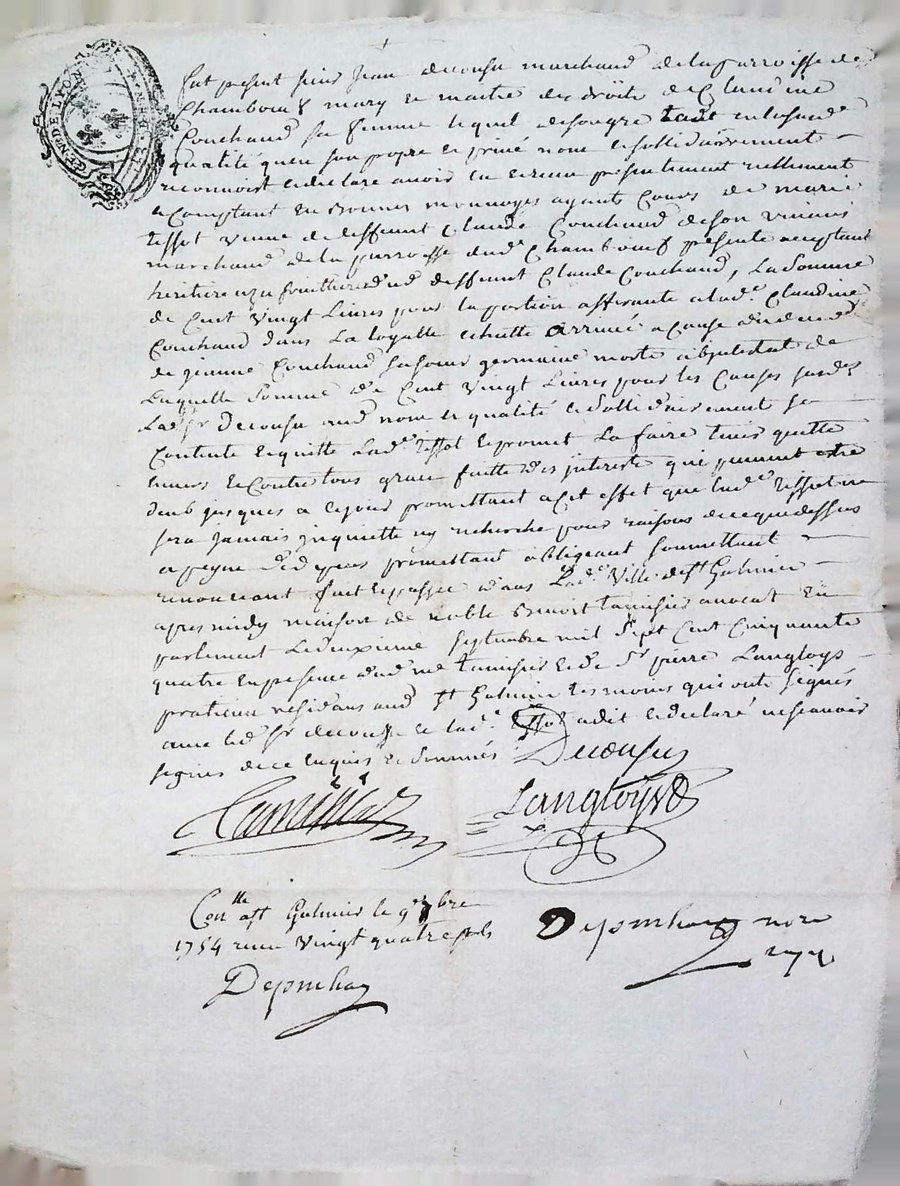 GEN DE LYON
fut présent sieur Jean decousu marchand de la parroisse de
Chambœuf mary et maitre des droits de Claudine
Couchaud sa femme lequel de son gré tant en lad
qualité qu'en son propre et privé nom et sollidairement
reconnoist et declare avoir eu et receu présentement réellement
et Comptant en Bonnes monnoyes ayants Cours de marie
tissot veuve de deffunt Claude Couchaud de son vivant
marchand de la parroisse dud Chambœuf présente acceptant
heritiere deffunt Claude Couchaud, La somme
de Cent Vingt Livres pour la portion afferante a lad Claudine
Couchaud dans La loyalle echutte arrivée a Cause du deced
de jeanne Couchaud sa sœur germaine morte abjntestat de
Laquelle somme de Cent Vingt Livres pour les Causes susd
Led sr decousu aud nom et qualité et sollidairement se
Contente et quitte Lad tissot et promet La faire tenir quitte
envers et Contre tous grace faitte des jnterests qui peuvent estre
deub jusques a ce jour promettant a cet effet que lad tissot ne
sera jamais jnquiettée ny recherchée pour raisons de ce que dessus
a peyne de promettant obligeant soumettant
renonceant fait et passé dans Lad Ville de st Galmier
apres midy maison de noble Benoist tamisier avocat en
parlement Le deuxieme septembre mil sept Cent Cinquante
quatre en présence dud me tamisier et de sr pierre Langloys
praticien résidans aud st Galmier tesmoins qui onts signés
avec led sr decousu et lad tissot a dit et declaré ne scavoir
signer de ce enquis et sommés
Decousu
Tamisier
Langloys
Conlle a st Galmier le 9e 7bre
1754 receu Vingt quatre sols
Deponchon
Deponchon nore
royal